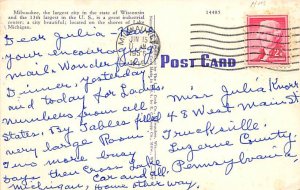 Milwaukee, the largest city in the state of Wisconsin
and the 13th largest in the U. S., is a great industrial
center; a city beautiful; located on the shores of Lake
Michigan.
14485
Dear Julia. Have
your encouraging
mail. Wonderful
Dinner, yesterday
and today for Ladies,
numbers from all
States. By Tables filled
very large Room
Two more busy
days then Cross Lake
Michigan, Car and all.
Home other way.
POST CARD
Miss Julia Knorr
48 West Main St
Trucksville
Luzerne County
Pennsylvania